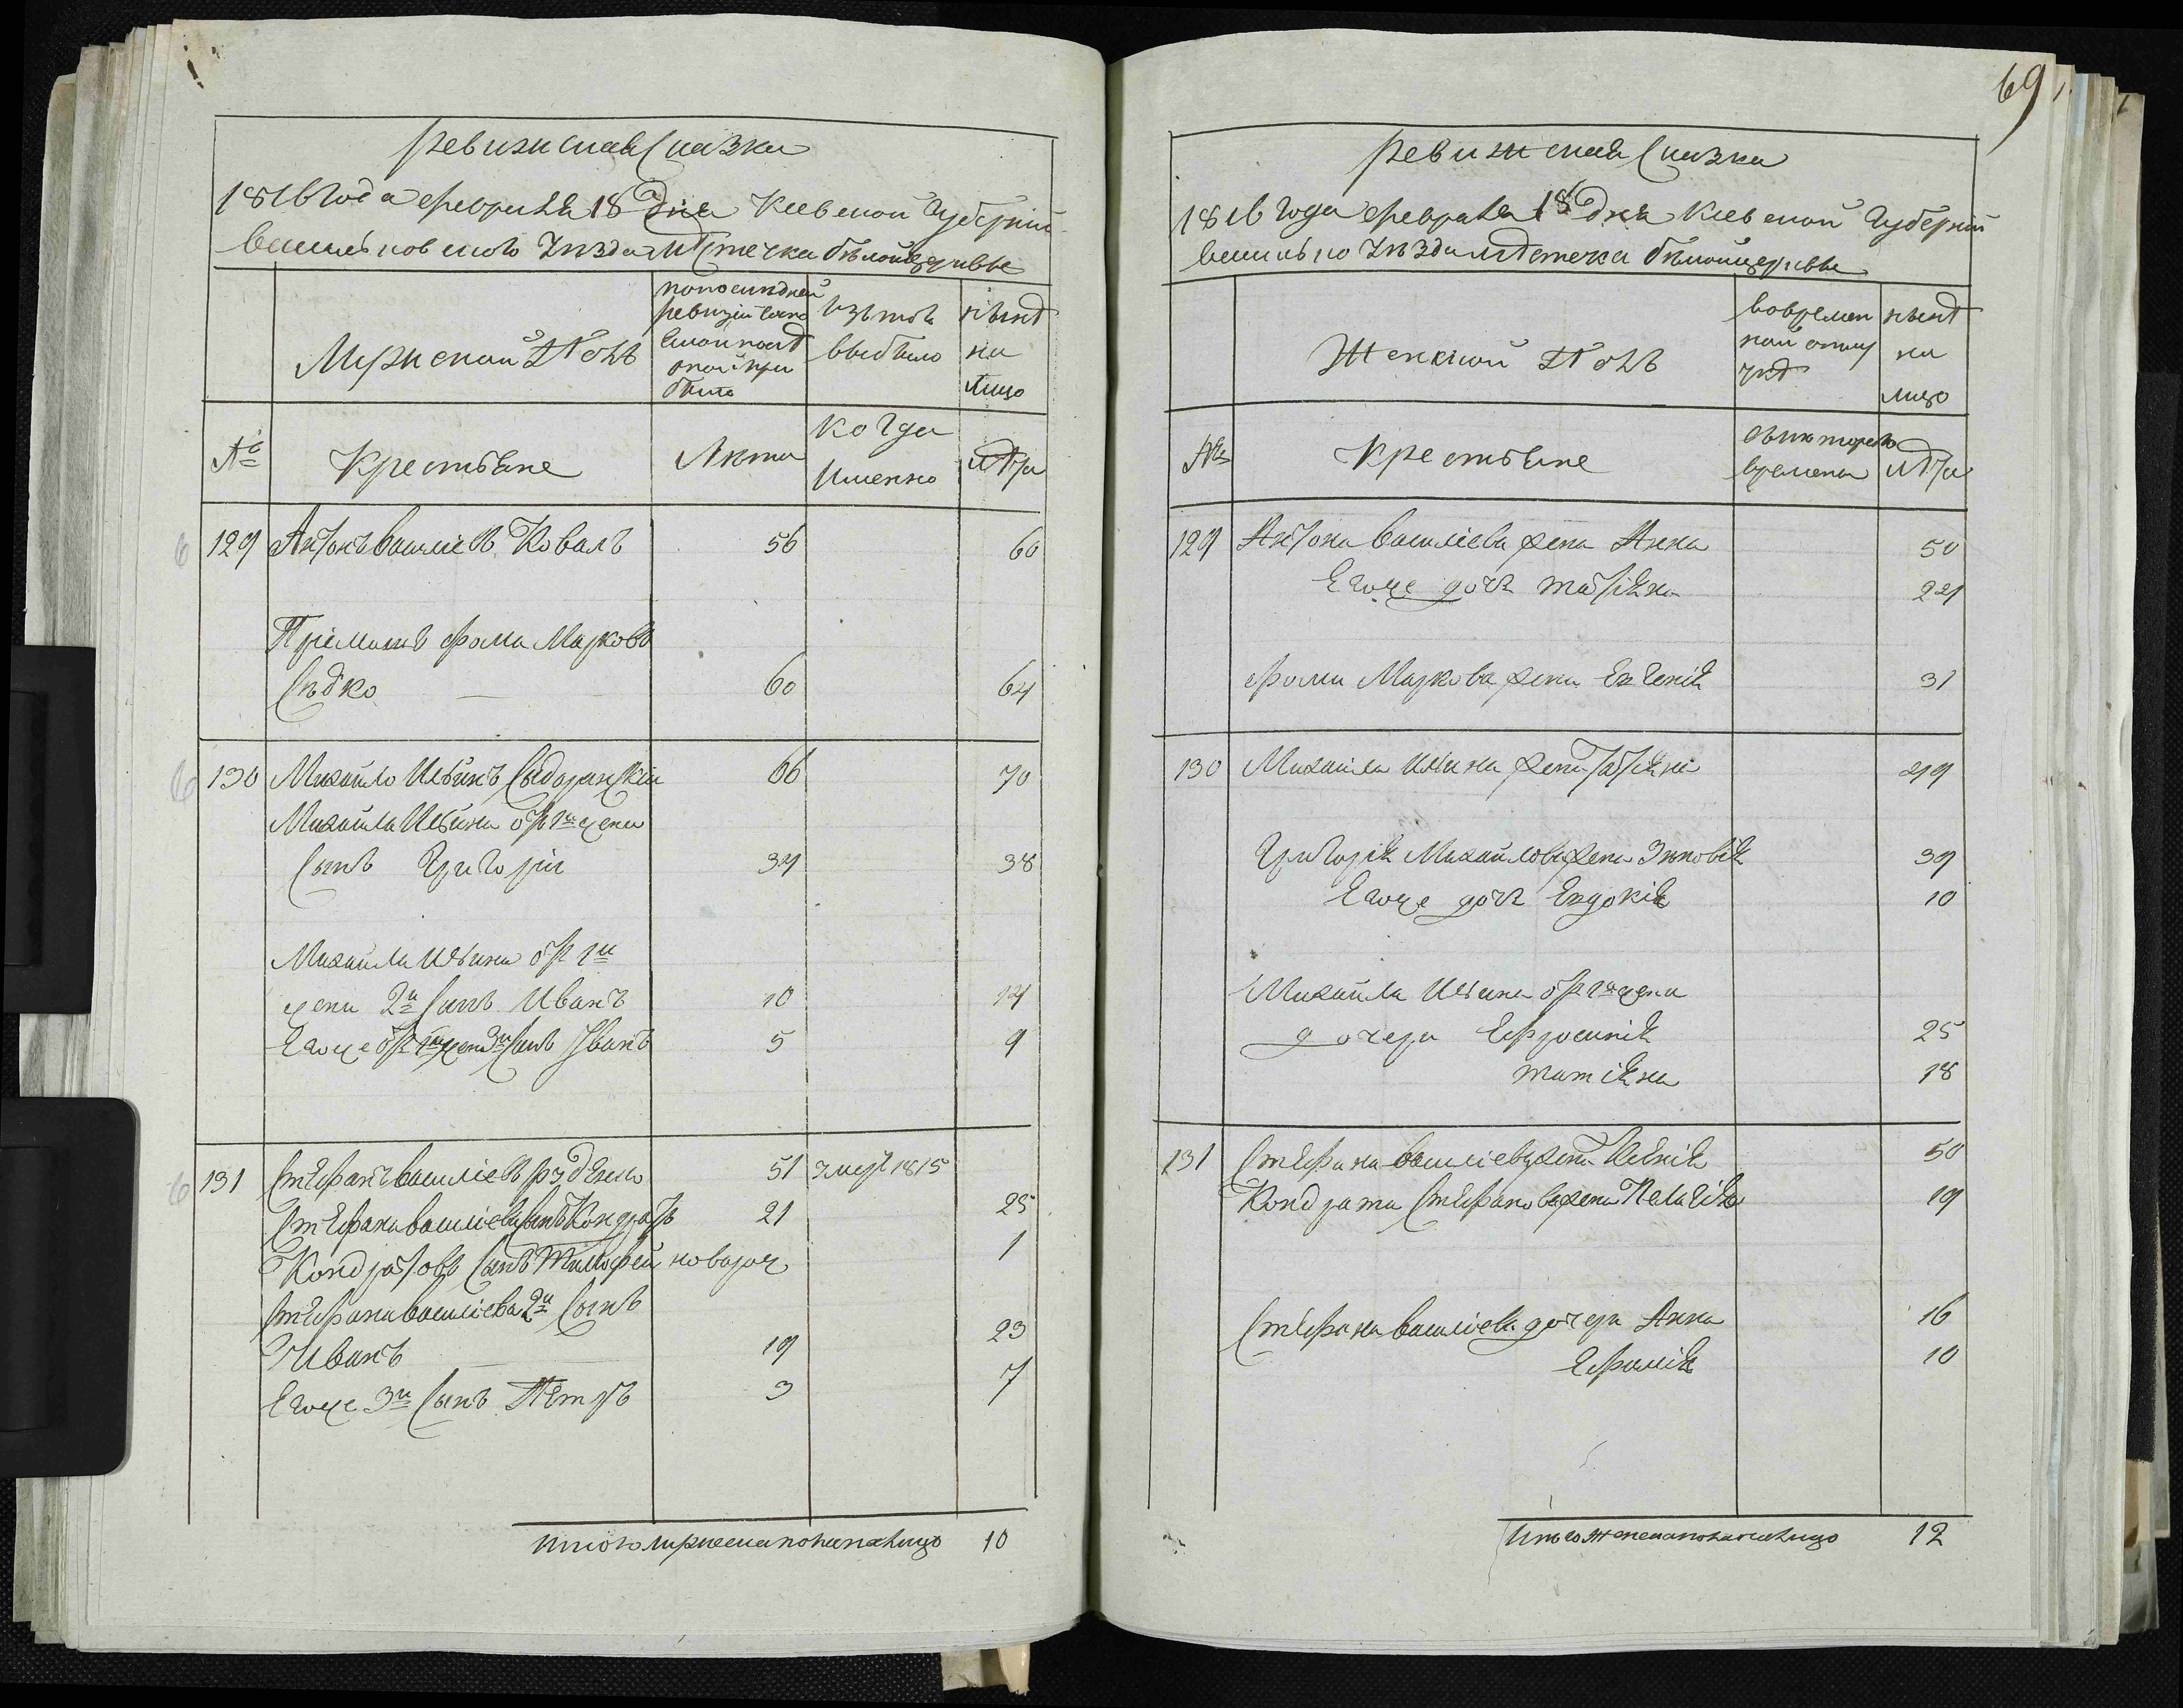 69
Ревижская Сказка
1816 года февраля 18 Дня Киевской Губерніи
васильковского Уезда Местечка белойцеркве
Мужеской Полъ
попоследней ревизіи состояло и после оной прибыло
изътого выбыло
ныне на лицо
№
Крестьяне
Лета
когда именно
лета
129 Антонъ василіевъ Коваль 56 60
Пріймакъ Фома Марковъ
Седко 60 64
130 Михайло Ильинъ 66 70
Михайла Ильина отъ 1й жены
Сынъ Григорій 34 38
Михайла Ильина отъ 1й
жены 2й Сынъ Иванъ 10 14
Егоже отъ 1й жены 3й Сынъ Иванъ 5 9
131 Стефанъ василіевъ Руденко 51 умер 1815
Стефана василіева Сынъ Кондратъ 21 25
Кондратовъ Сынъ Тимофей новорож 1
Стефана василіева 2й Сынъ
Иванъ 19 23
Егоже 3й Сынъ Петръ 3 7
Итого мужеска пола налицо 10
Ревижская Сказка
18 16 года февраля 18 дня Киевской Губерніи
василько Уезда Местечка белойцеркве
Женской Полъ
вовременной отлучке
ныне на лицо
№
Крестьяне
съ которого времени
лета
129 Антона василіева жена Анна 50
Егоже дочь татіяна 21
Фомы Маркова жена Евгенія 31
130 Михаила Ильина жена татіяна 49
Григорія Михайлова жена Зиновія 39
Егоже дочь Евдокія 10
Михайла Ильина отъ 1й жены
дочери Ефросинія 25
татіяна 18
131 Стефана василіева жена Ксенія 50
Кондрата Стефанова жена Пелагія 19
Стефана василіева дочери Анна 16
Ефимія 10
Итого женска пола налицо 12